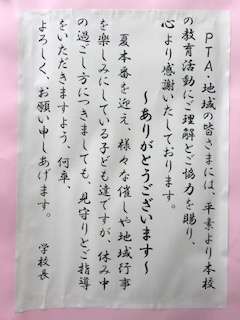 PTA・地域の皆さまには、平素より本校
の教育活動にご理解とご協力を賜り、
心より感謝いたしております。
～ありがとうございます～
夏本番を迎え、様々な催しや地域行事
を楽しみにしている子ども達ですが、休み中
の過ごし方につきましても、見守りとご指導
をいただきますよう、何卒、
よろしく、お願い申しあげます。
学校長